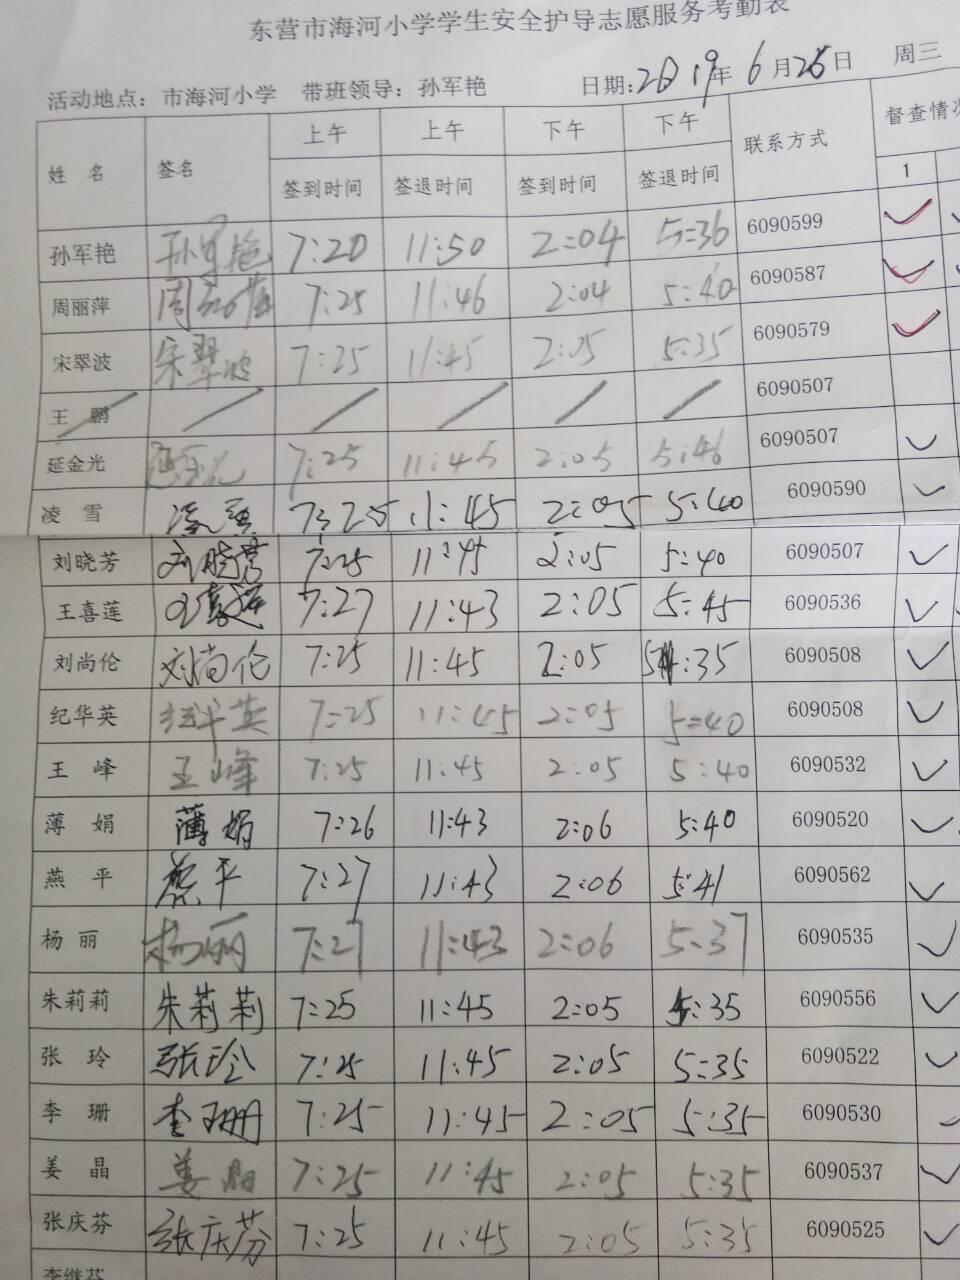 东营市海河小学学生安全护导志愿服务考勤表
活动地点：市海河小学 带班领导：孙军艳 日期：2019年6月26日 周三
姓 名 签名 上午 上午 下午 下午 联系方式 督查情况
签到时间 签退时间 签到时间 签退时间 1
孙军艳 孙军艳 7:20 11:50 2:04 5:36 6090599
周丽萍 周丽萍 7:25 11:46 2:04 5:40 6090587
宋翠波 宋翠波 7:25 11:45 2:05 5:35 6090579
王 鹏 6090507
延金光 延金光 7:25 11:45 2:05 5:46 6090507
凌 雪 凌雪 7:25 11:45 2:05 5:40 6090590
刘晓芳 刘晓芳 7:25 11:45 2:05 5:40 6090507
王喜莲 王喜莲 7:27 11:43 2:05 5:45 6090536
刘尚伦 刘尚伦 7:25 11:45 2:05 5:35 6090508
纪华英 纪华英 7:25 11:45 2:05 5:40 6090508
王 峰 王峰 7:25 11:45 2:05 5:40 6090532
薄 娟 薄娟 7:26 11:43 2:06 5:40 6090520
燕 平 燕平 7:27 11:43 2:06 5:41 6090562
杨 丽 杨丽 7:27 11:43 2:06 5:37 6090535
朱莉莉 朱莉莉 7:25 11:45 2:05 5:35 6090556
张 玲 张玲 7:25 11:45 2:05 5:35 6090522
李 珊 李珊 7:25 11:45 2:05 5:35 6090530
姜 晶 姜晶 7:25 11:45 2:05 5:35 6090537
张庆芬 张庆芬 7:25 11:45 2:05 5:35 6090525
李继芬